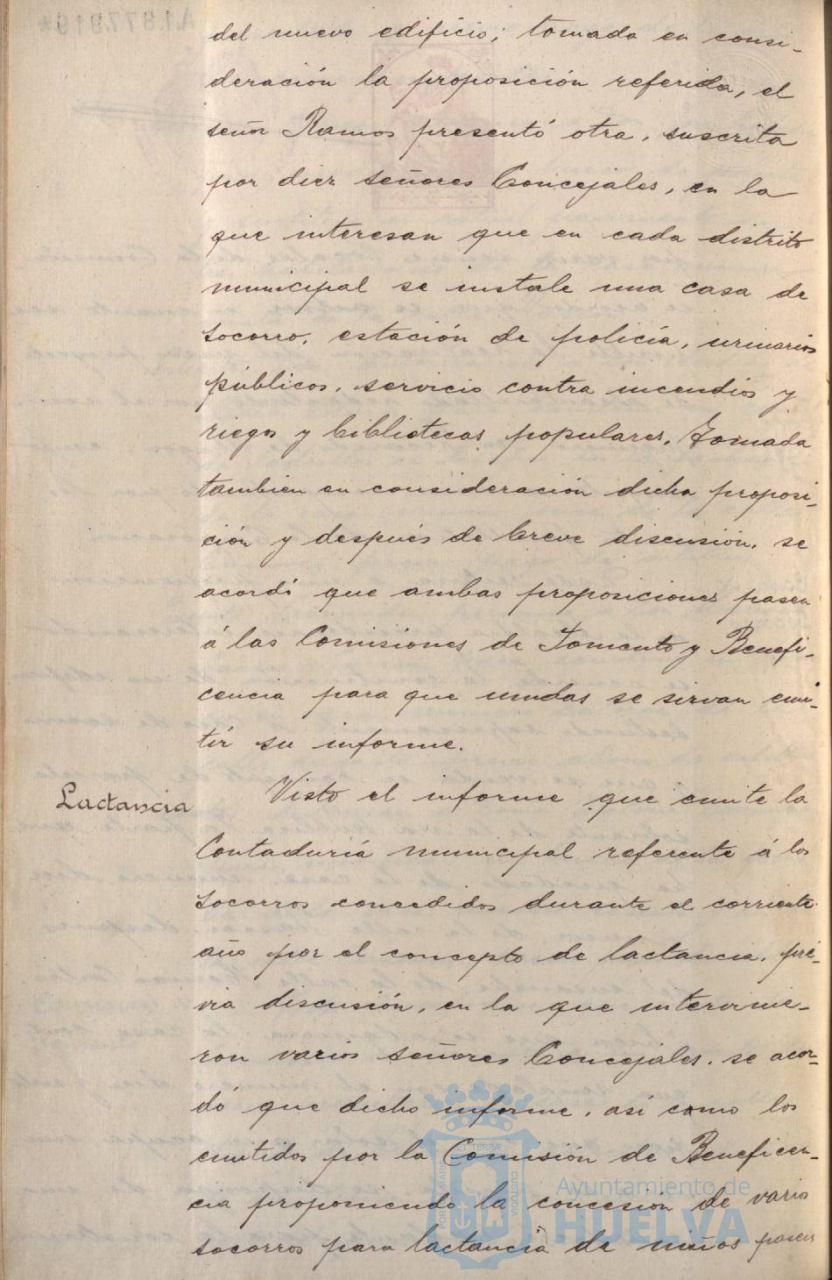 del nuevo edificio; tomada en consi-
deración la proposición referida, el
señor Ramos presentó otra, suscrita
por diez señores Concejales, en la
que interesan que en cada distrito
municipal se instale una casa de
socorro, estación de policía, urinarios
públicos, servicio contra incendios y
riegos y bibliotecas populares. Tomada
tambien en consideración dicha proposi-
ción y después de breve discusión, se
acordó que ambas proposiciones pasen
á las Comisiones de Fomento y Benefi-
cencia para que unidas se sirvan emi-
tir su informe.
Lactancia
Visto el informe que emite la
Contaduría municipal referente á los
socorros concedidos durante el corriente
año por el concepto de lactancia, pré-
via discusión, en la que intervinie-
ron varios señores Concejales, se acor-
dó que dicho informe, así como los
emitidos por la Comisión de Beneficen-
cia proponiendo la concesión de varios
socorros para lactancia de niños pasen
Ayuntamiento de
HUELVA